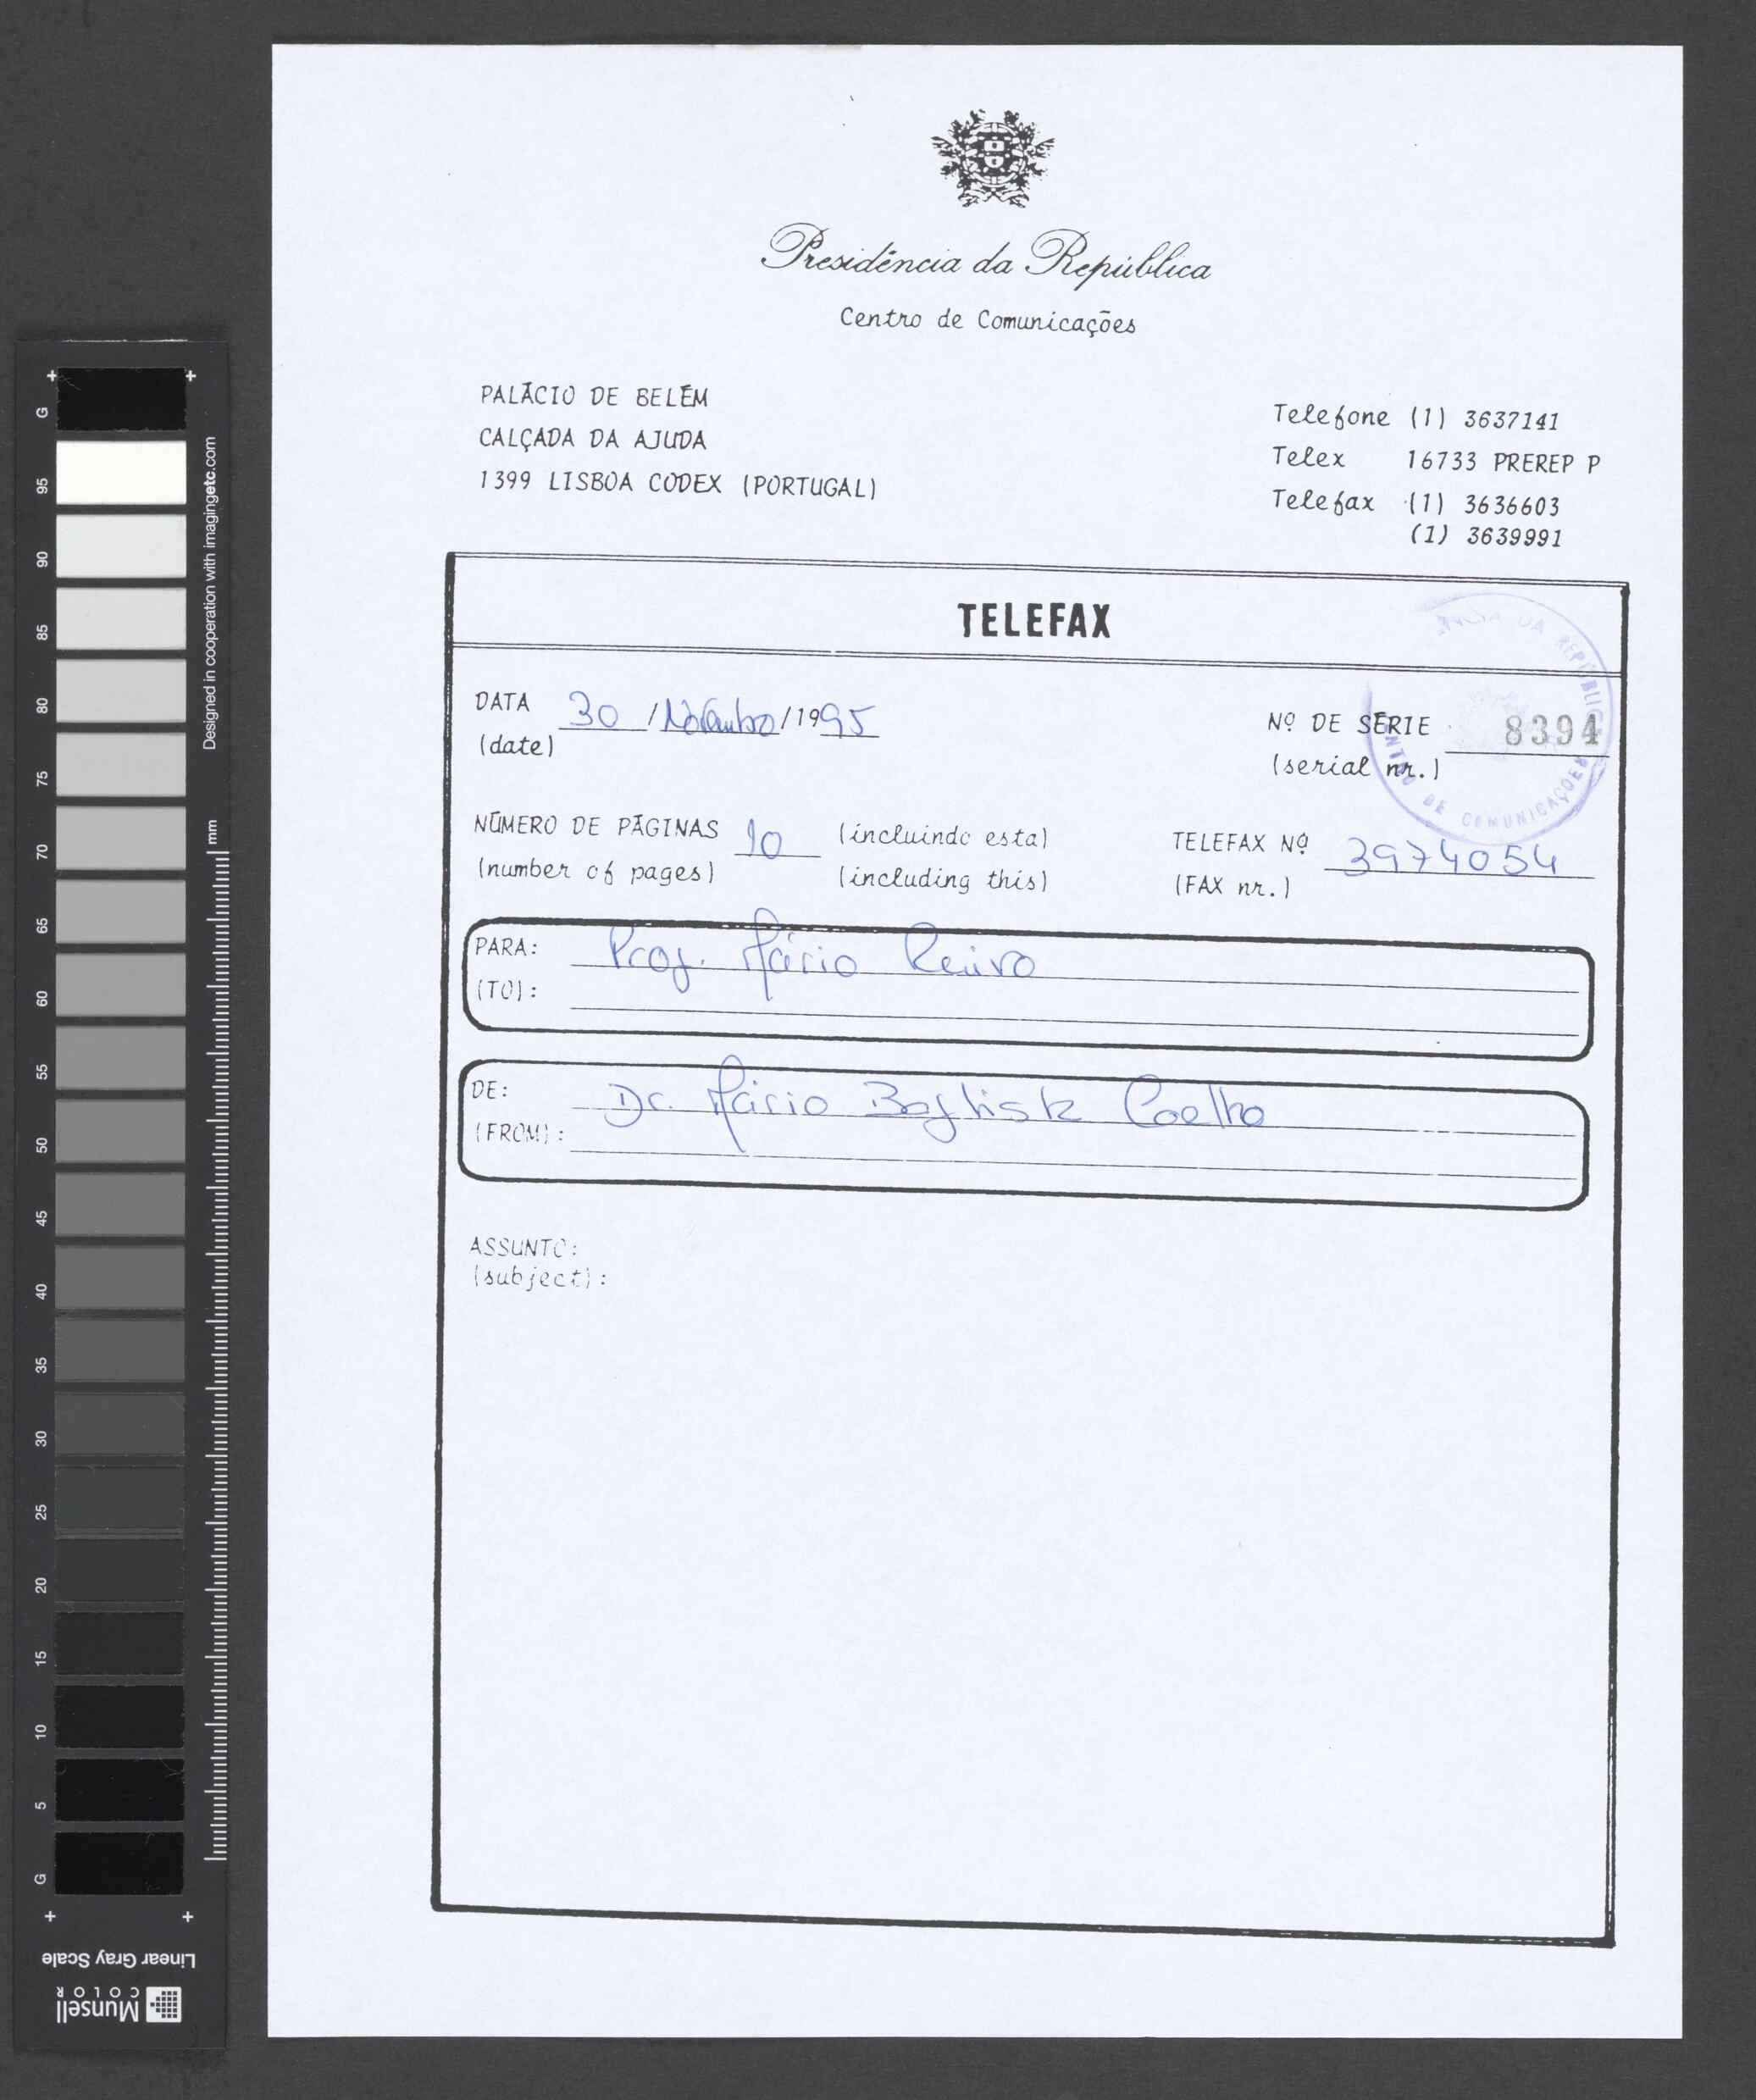 Presidência da República
Centro de Comunicações
PALÁCIO DE BELÉM
CALÇADA DA AJUDA
1399 LISBOA CODEX (PORTUGAL)
Telefone (1) 3637141
Telex 16733 PREREP P
Telefax (1) 3636603
(1) 3639991
TELEFAX
DATA 30 / Novembro / 1995
(date)
Nº DE SÉRIE 8394
(serial nr.)
DA REPÚBLICA
CENTRO DE COMUNICAÇÕES
NÚMERO DE PÁGINAS 10 (incluindo esta)
(number of pages) (including this)
TELEFAX Nº 3974054
(FAX nr.)
PARA: Prof. Mário Ruivo
(TO):
DE: Dr. Mário Baptista Coelho
(FROM):
ASSUNTO:
(subject):
G
95
90
85
80
75
70
65
60
55
50
45
40
35
30
25
20
15
10
5
G
Designed in cooperation with imagingetc.com
mm
Linear Gray Scale
Munsell
COLOR